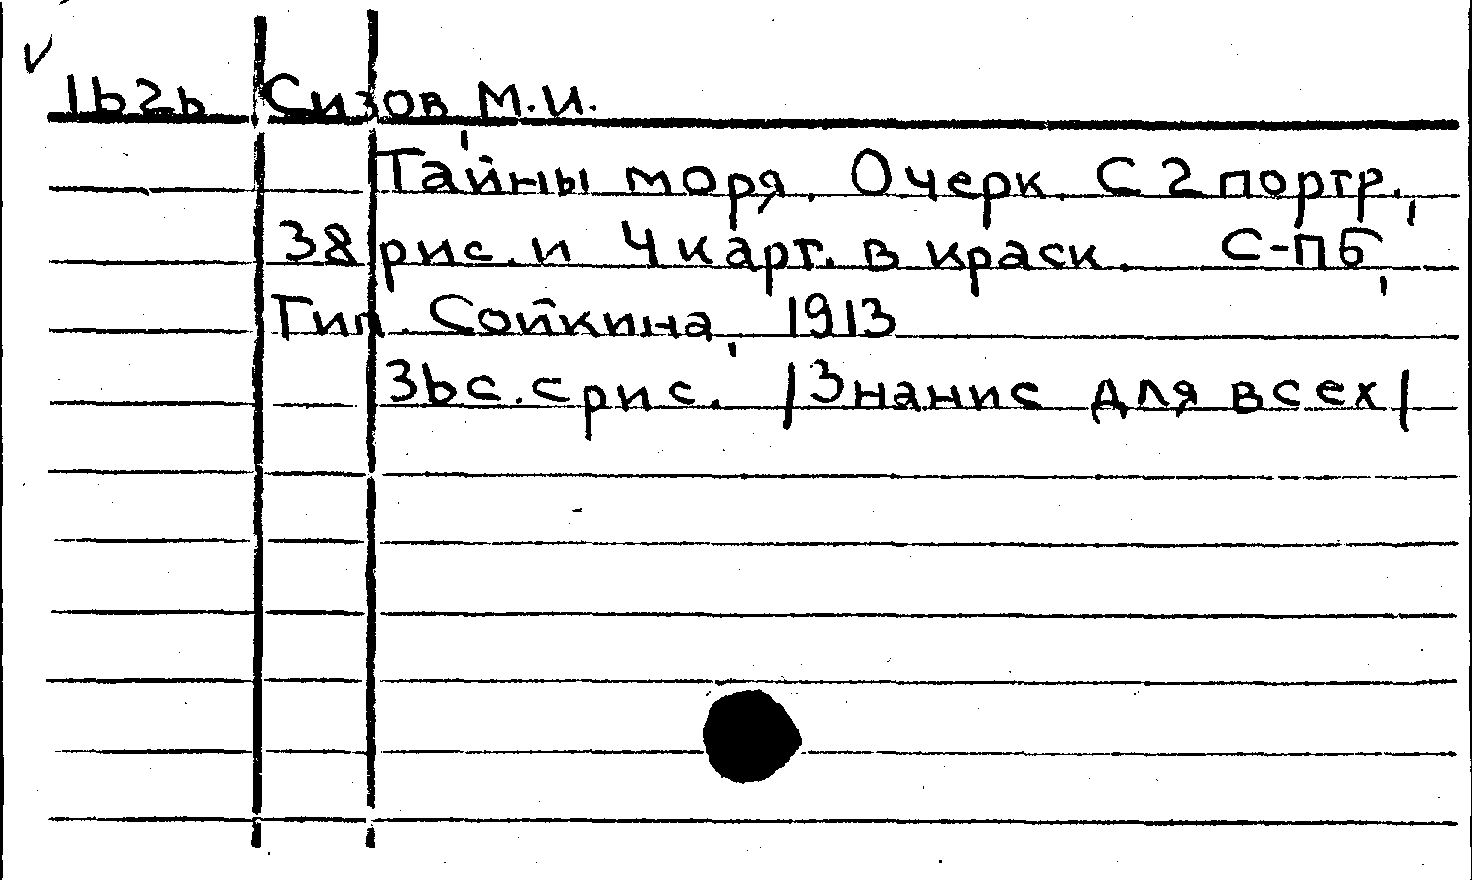 1626 Сизов, М.И.
Тайны моря. Очерк. С 2 портр.,
38 рис. и 4 карт. в краск. С-ПБ,
Тип. Сойкина, 1913
36 с. с рис. /Знание для всех/